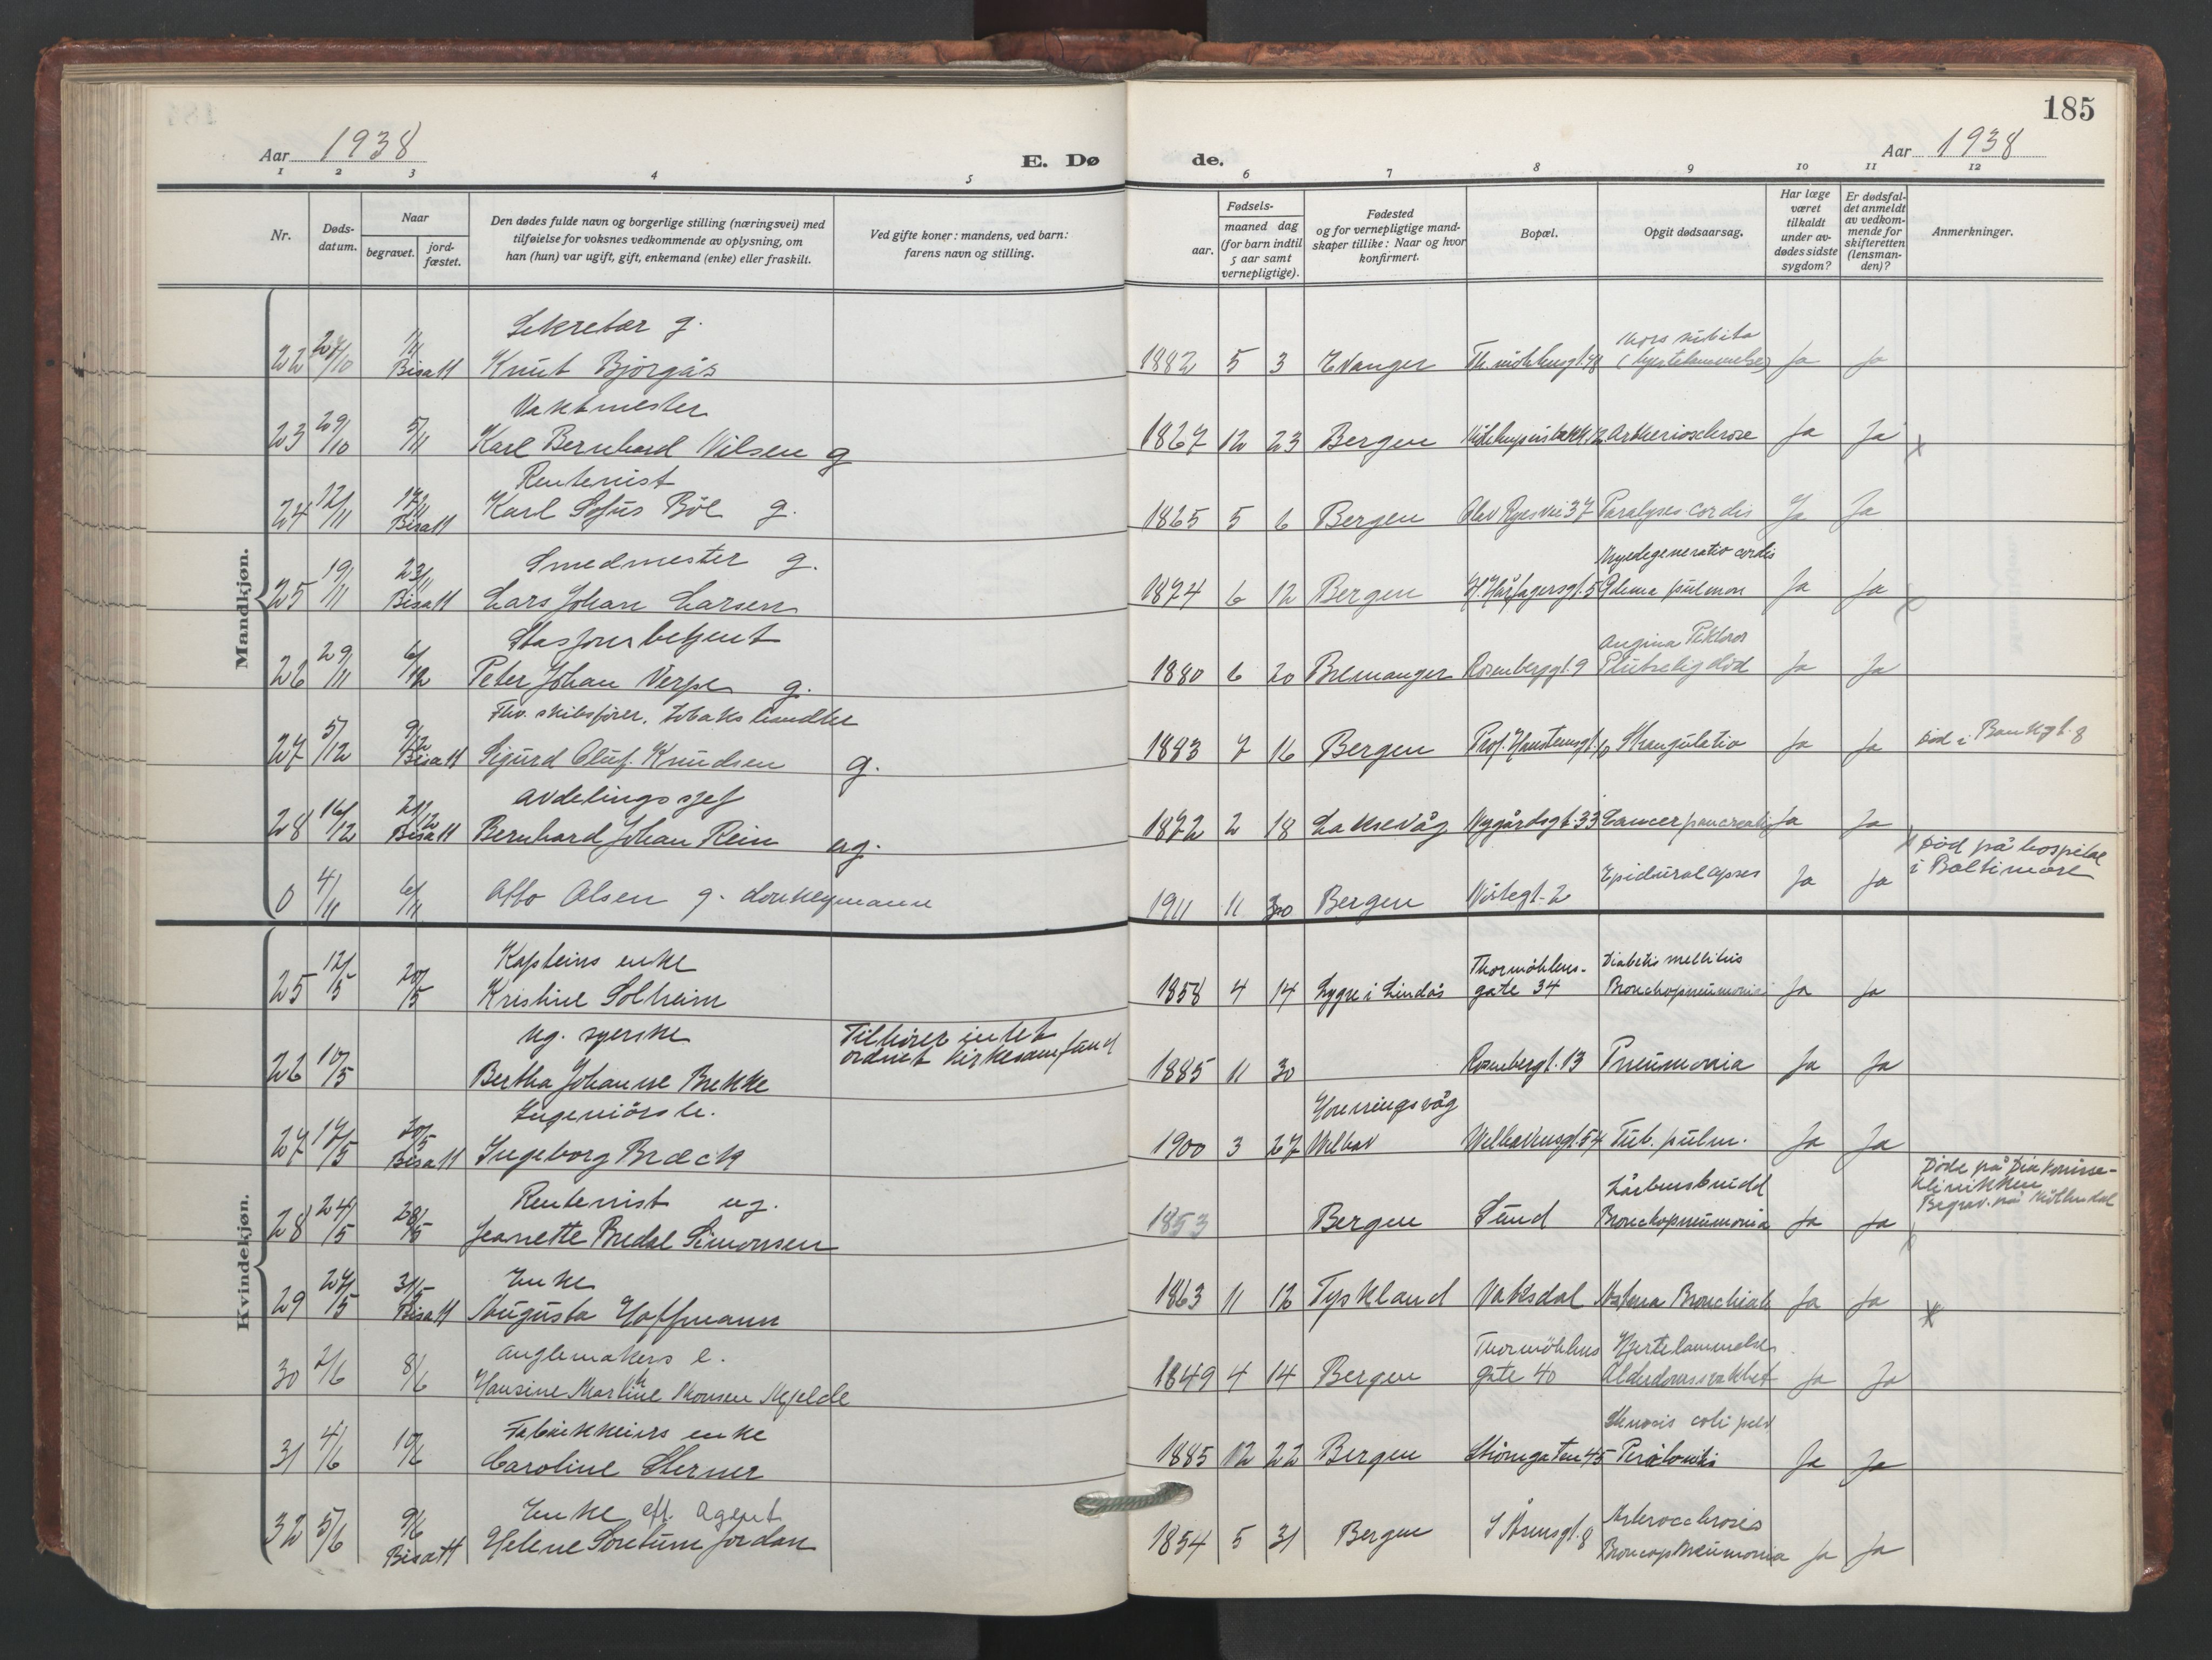 185
Aar 1938
E. Dø de.
Aar 1938
1 2 3 4 5 6 7 8 9 10 11 12
Nr.
Døds-
datum.
Naar
begravet.
jord-
fæstet.
Den dødes fulde navn og borgerlige stilling (næringsvei) med
tilføielse for voksnes vedkommende av oplysning, om
han (hun) var ugift, gift, enkemand (enke) eller fraskilt.
Ved gifte koner: mandens, ved barn:
farens navn og stilling.
Fødsels-
aar.
maaned dag
(for barn indtil
5 aar samt
vernepligtige).
Fødested
og for vernepligtige mand-
skaper tillike: Naar og hvor
konfirmert.
Bopæl.
Opgit dødsaarsag.
Har læge
været
tilkaldt
under av-
dødes sidste
sygdom?
Er dødsfal-
det anmeldt
av vedkom-
mende for
skifteretten
(lensman-
den)?
Anmerkninger.
Mandkjøn.
Sekretær g. mors subita
22 27/10 1/11 Bisatt Knut Bjørgås 1882 5 3 Evanger (hjertelammelse) Ja Ja
Vaktmester
23 29/10 5/11 Karl Bernhard Nilsen g 1867 12 23 Bergen Artheriosclerose Ja Ja x
Rentenist
24 12/11 17/11 Bisatt Karl Sofus Böe g. 1865 5 6 Bergen Olav Ryes vei 37 Paralyses cordis Ja Ja
Smedmester g. Myodegeneratio cordis
25 19/11 23/11 Bisatt Lars Johan Larsen 1874 6 12 Bergen H. Hårfagersgt. 5 Ødema pulmon Ja Ja
Stasjonsbetjent Angina Pektoris
26 29/11 6/12 Peter Johan Verpe g. 1880 6 20 Bremanger Rosenberggt. 9 Plutselig død Ja Ja
Fhv. skibsfører, tobakshandler
27 5/12 9/12 Bisatt Sigurd Oluf Knudsen g. 1883 7 16 Bergen Prof. Hansteensgt. 10 Strangulatio Ja Ja Död i Bankgt. 8
Avdelingssjef
28 16/12 21/12 Bisatt Bernhard Johan Rein ug. 1872 2 18 Laksevåg Nygårdsgt. 33 Cancer pancreatis Ja Ja
Død på hospital
0 4/11 6/11 Otto Olsen g. donkeymann 1911 11 30 Bergen Nöstegt. 2 Epidural apses Ja Ja i Baltimore
Kvindekjøn.
Kapteins enke Thormöhlens- Diabetis mellitus
25 12/5 20/5 Kristine Solheim 1858 4 14 Lygre i Lindås gate 34 Bronchopneumonia Ja Ja
ug. syerske Tilhører intet
ordnet kirkesamfund
26 10/5 Bertha Johanne Brekke 1885 11 30 Rosenbergt. 13 Pneumonia Ja Ja
Ingeniörs h. Honningsvåg
27 17/5 20/5 Bisatt Ingeborg Bræck 1900 3 27 Welhavensgt. 54 Tub. pulm. Ja Ja
Rentenist ug. Lårbensbrudd Døde på Diakonisse-
klinikken
28 24/5 28/5 Jeanette Bredal Simonsen 1853 Bergen Sund Bronchopneumonia Ja Ja Begrav. på Møllendal
Enke
29 27/5 31/5 Bisatt Augusta Hoffmann 1863 11 12 Tyskland Vaksdal Astma Bronchiale Ja Ja x
Anglemakers e. Thormöhlens Hjertelammelse
30 2/6 8/6 Hansine Martine Monsen Mjelde 1849 4 14 Bergen gate 40 Alderdomssvakhet Ja Ja
Fabrikkeiers enke
31 4/6 10/6 Caroline Sterner 1885 12 22 Bergen Strömgaten 45 Ja Ja
Enke eft. Agent
32 5/6 9/6 Bisatt Helene Soretune Jordan 1854 5 31 Bergen Broncopneumonia Ja Ja